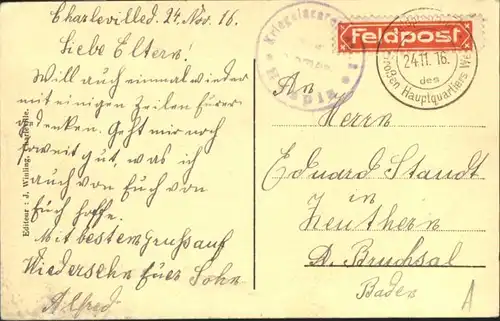 Charleville d. 24. Nov. 16.
Liebe Eltern!
Will auch einmal wieder
mit einigen Zeilen Eurer
denken. Geht mir noch
soweit gut, was ich
auch von Euch von
hoffe.
Mit bestem Gruss auf
Wiedersehn Euer Sohn
Alfred
Editeur: J. Winling, Charleville.
Feldpost
24.11.16.
des
Großen Hauptquartiers
An
Herrn
Eduard Staudt
in
Zeuthern
A. Bruchsal
Baden
A